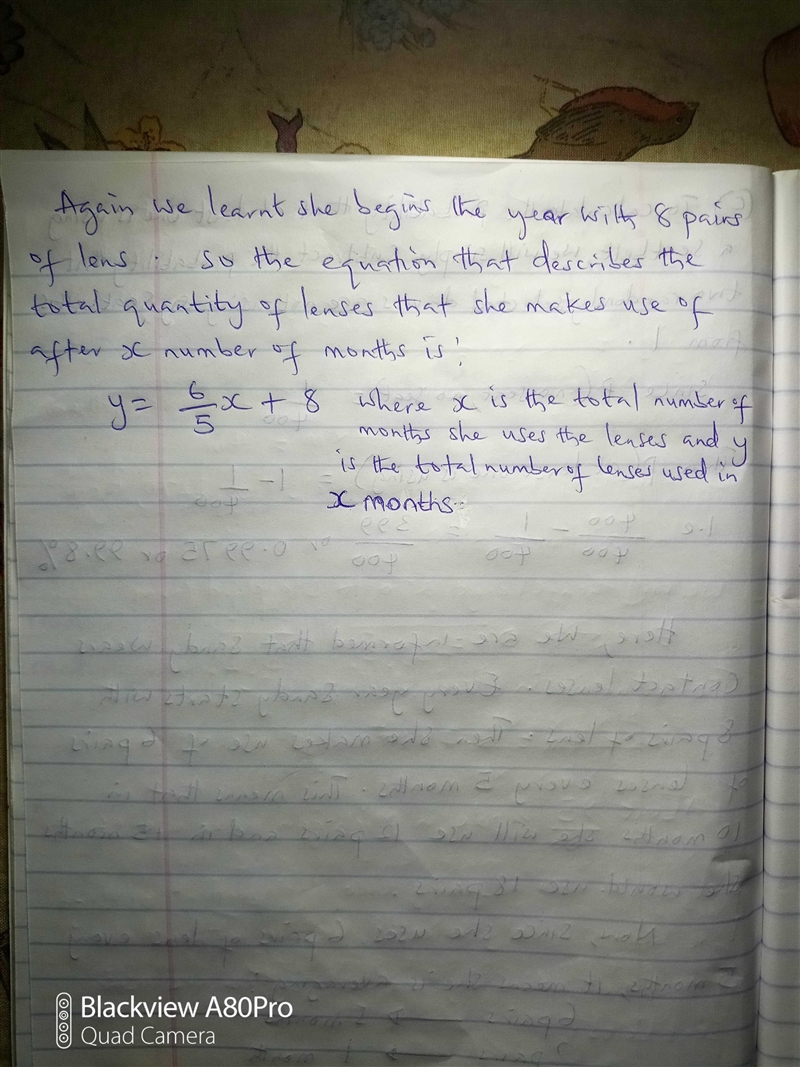 Again we learnt she begins the year with 8 pairs
of lens. so the equation that describes the
total quantity of lenses that she makes use of
after x number of months is:
y = 6/5 x + 8 where x is the total number of
months she uses the lenses and y
is the total number of lenses used in
x months.
Blackview A80Pro
Quad Camera